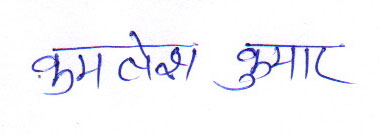 कुमलेश कुमार